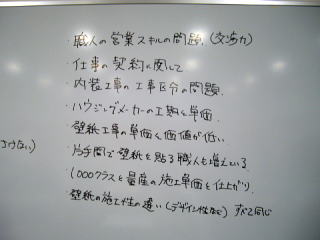 ・職人の営業スキルの問題.(交渉力)
・仕事の契約に関して
・内装工事の工事区分の問題.
・ハウジングメーカーの工期と単価.
・壁紙工事の単価と価値が低い
・片手間で壁紙を貼る職人も増えている.
・1000クラスと量産の施工単価と仕上がり.
・壁紙の施工性の違い(デザイン性など)すべて同じ